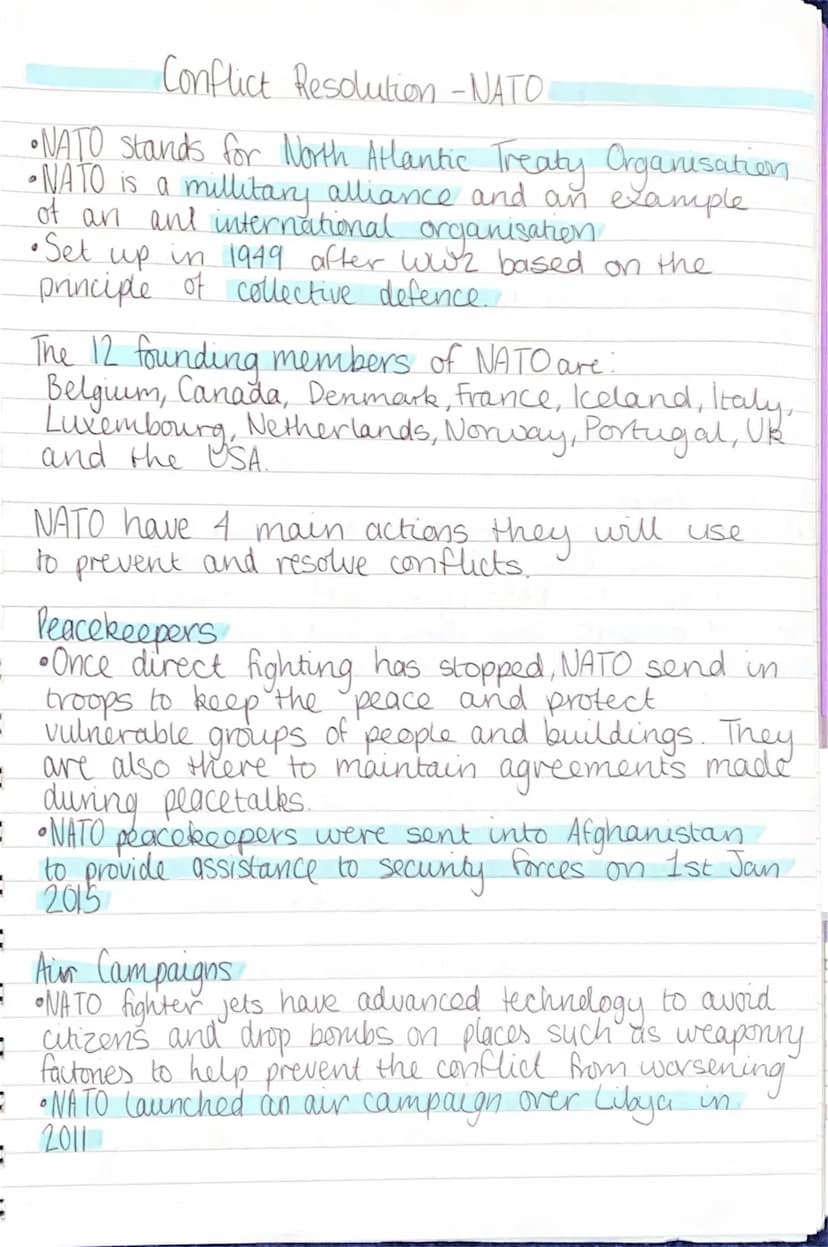 Conflict Resolution - NATO
•NATO stands for North Atlantic Treaty Organisation
•NATO is a millitary alliance and an example
of an ant international organisation
•Set up in 1949 after WW2 based on the
principle of collective defence.
The 12 founding members of NATO are:
Belgium, Canada, Denmark, France, Iceland, Italy,
Luxembourg, Netherlands, Norway, Portugal, UK
and the USA.
NATO have 4 main actions they will use
to prevent and resolve conflicts.
Peacekeepers
•Once direct fighting has stopped, NATO send in
troops to keep the peace and protect
vulnerable groups of people and buildings. They
are also there to maintain agreements made
during peacetalks.
•NATO peacekeepers were sent into Afghanistan
to provide assistance to security forces on 1st Jan
2015
Air Campaigns
•NATO fighter jets have advanced technology to avoid
citizens and drop bombs on places such as weaponry
factories to help prevent the conflict from worsening
•NATO launched an air campaign over Libya in
2011